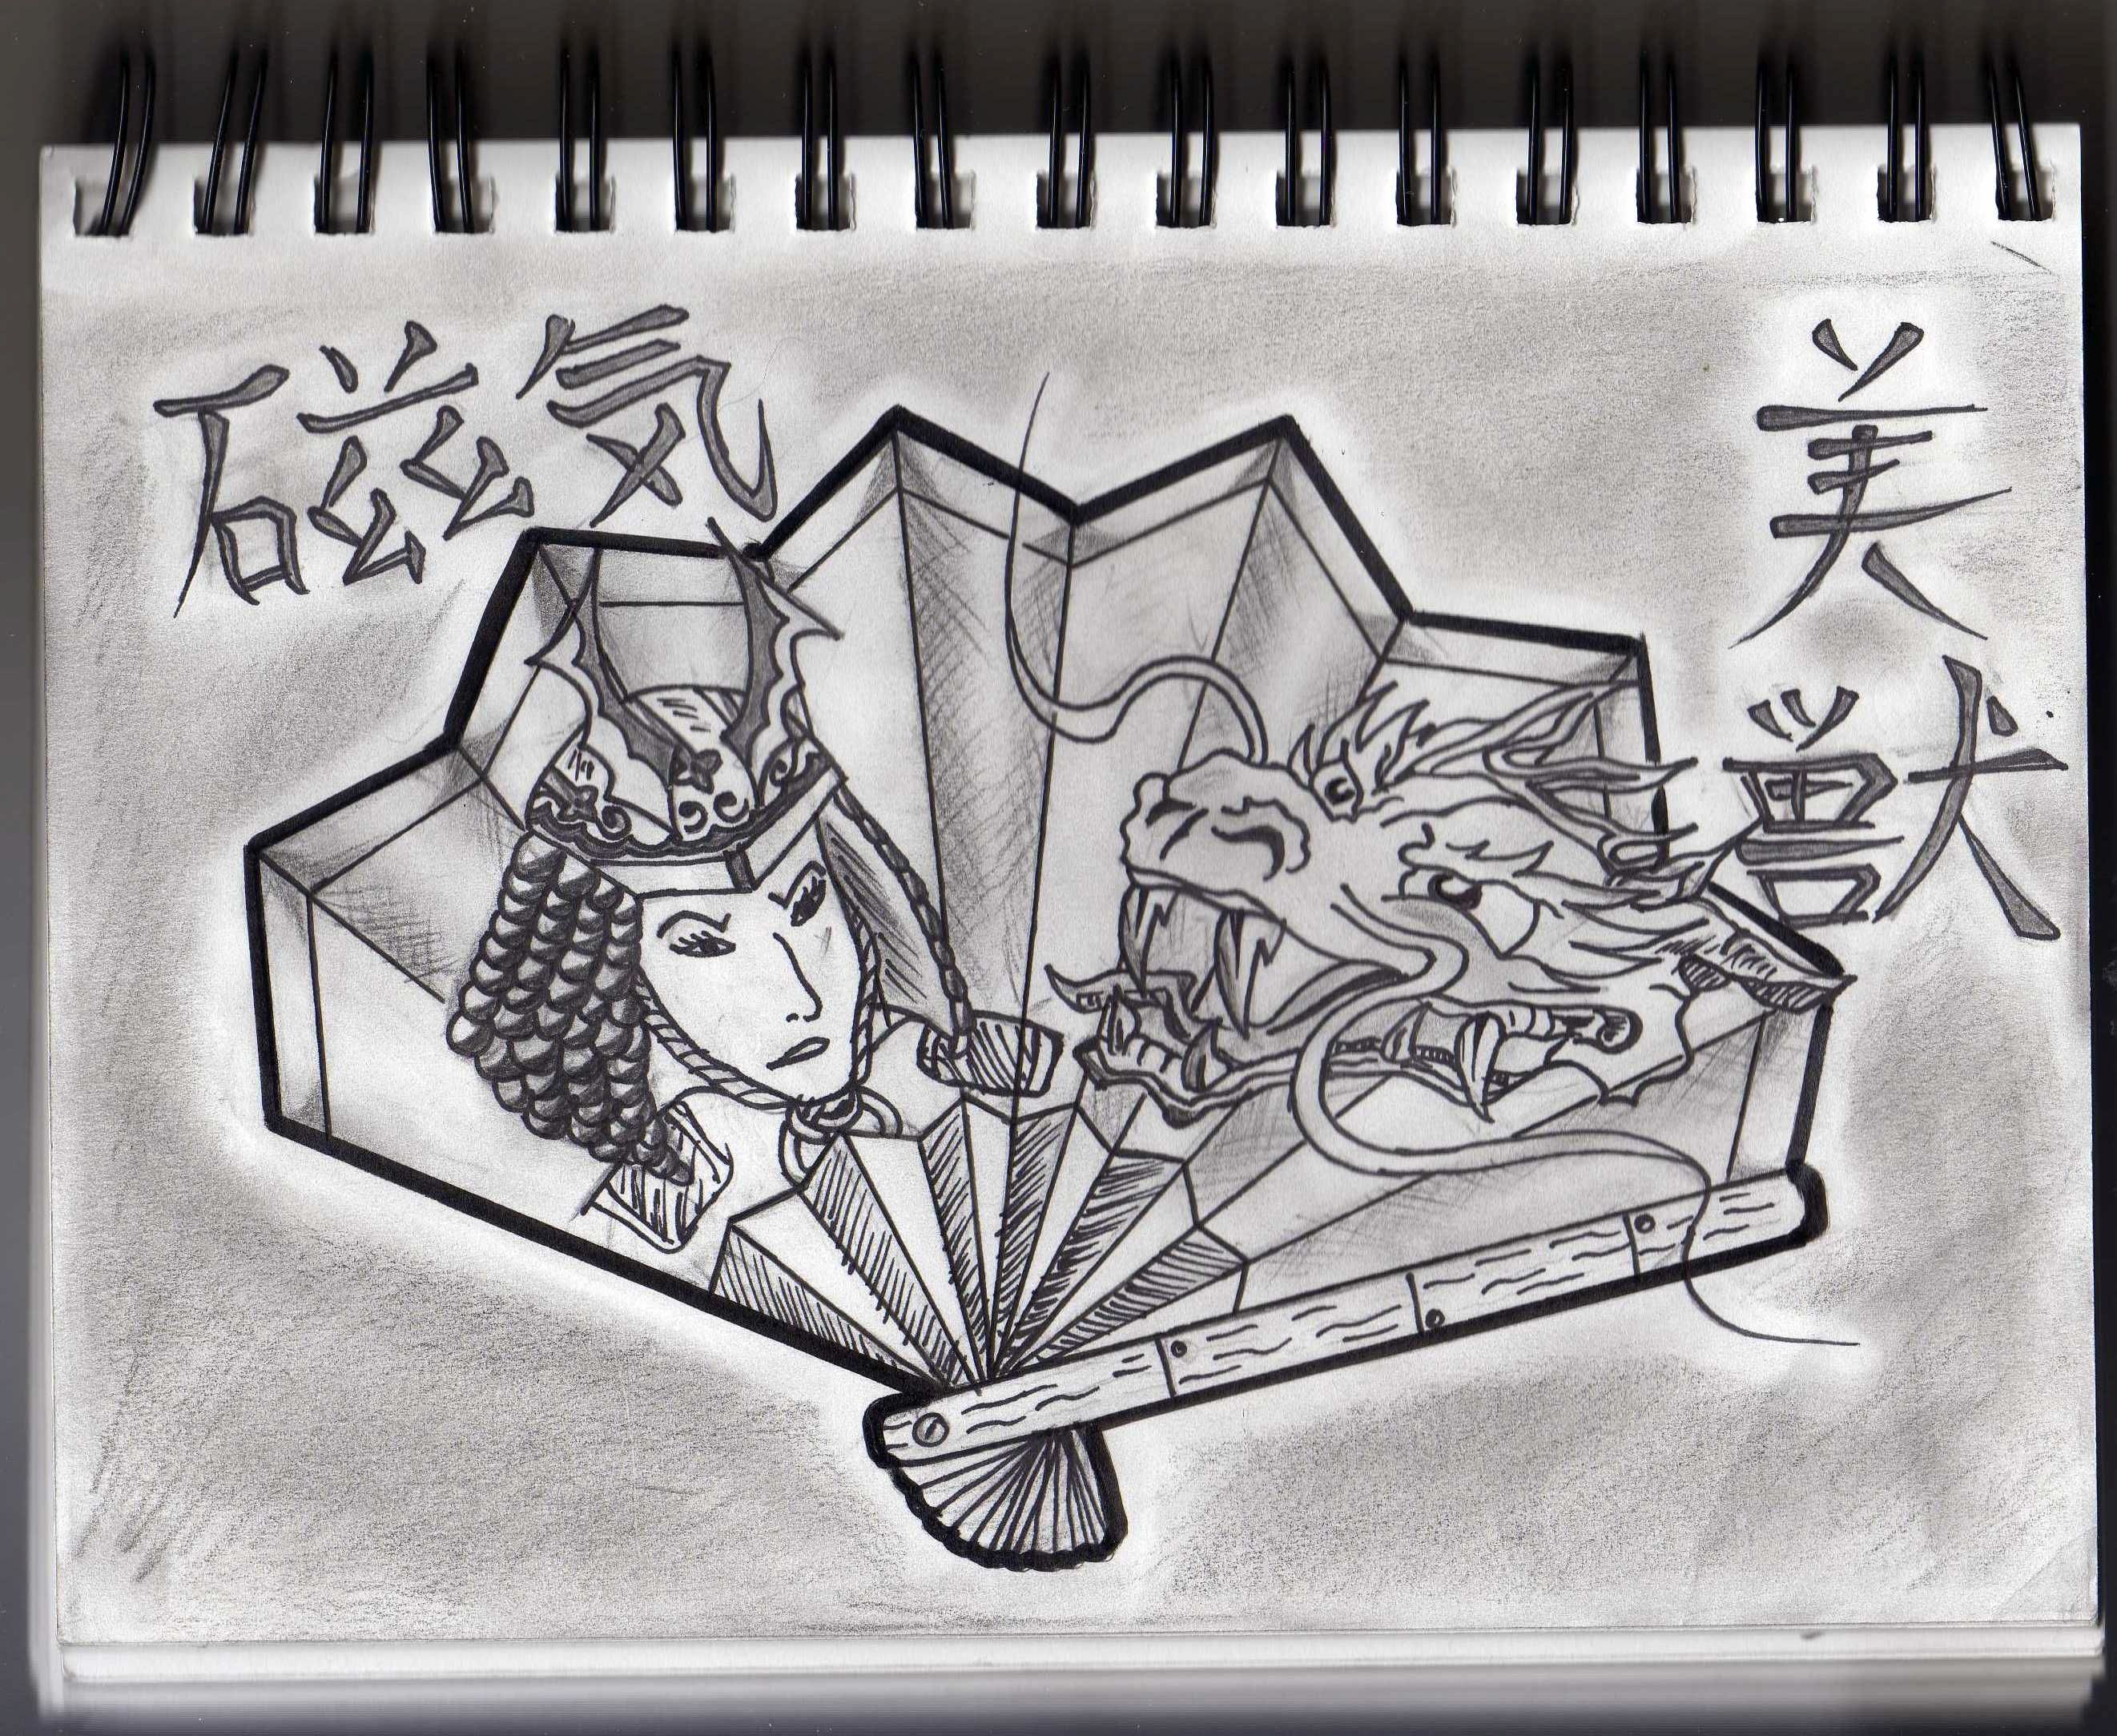 磁気
美獣